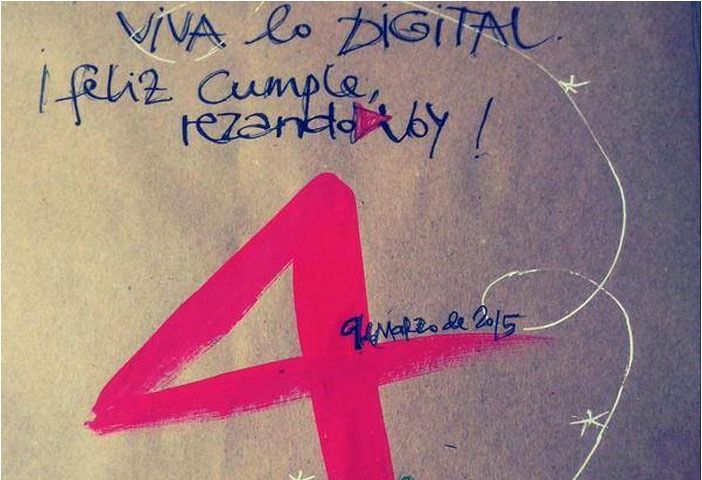 VIVA lo DIGITAL.
¡feliz Cumple,
rezando voy!
4
9 de Marzo de 2015